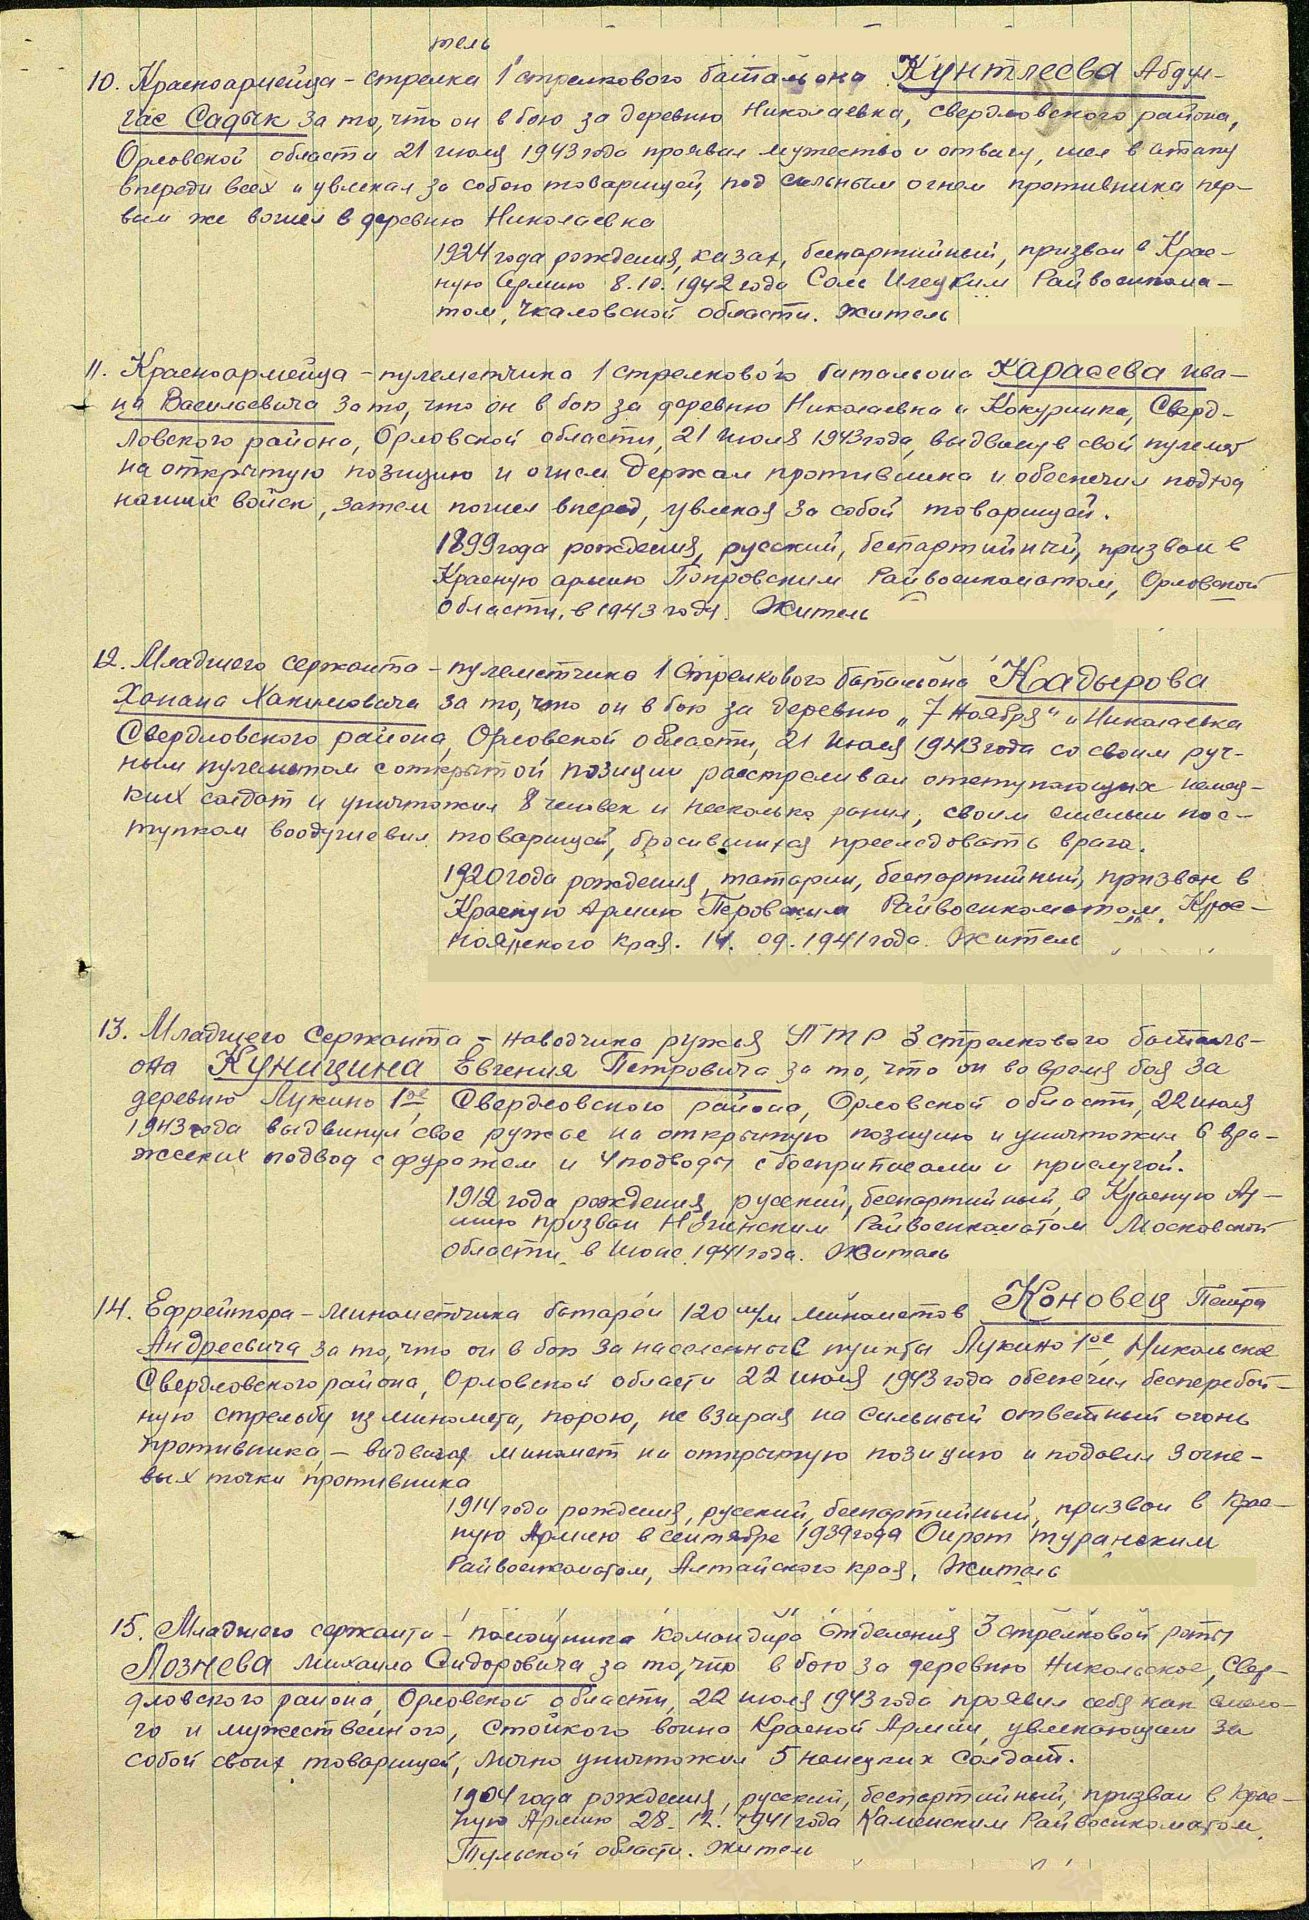 тель
10. Красноармейца – стрелка 1 стрелкового батальона Кунтлеева Абдул-
гас Садык за то, что он в бою за деревню Николаевка, Свердловского района,
Орловской области 21 июля 1943 года проявил мужество и отвагу, шел в атаку
впереди всех и увлекал за собою товарищей, под сильным огнем противника пер-
вым же вошел в деревню Николаевка
1924 года рождения, казах, беспартийный, призван в Крас-
ную Армию 8.10.1942 года Соль Илецким Райвоенкома-
том, Чкаловской области. Житель
11. Красноармейца – пулеметчика 1 стрелкового батальона Карасева Ива-
на Васильевича за то, что он в бою за деревню Николаевка и Кокуринка, Сверд-
ловского района, Орловской области, 21 июля 1943 года, выдвинув свой пулемет
на открытую позицию и огнем держал противника и обеспечил подход
наших войск, затем пошел вперед, увлекая за собой товарищей.
1899 года рождения, русский, беспартийный, призван в
Красную армию Покровским Райвоенкоматом, Орловской
области, в 1943 году. Житель
12. Младшего сержанта – пулеметчика 1 Стрелкового батальона Кадырова
Ханана Хакимовича за то, что он в бою за деревню „7 Ноября" и Николаевка
Свердловского района, Орловской области, 21 июля 1943 года со своим руч-
ным пулеметом с открытой позиции расстреливал отступающих немец-
ких солдат и уничтожил 8 человек и несколько ранил, своим смелым пос-
тупком воодушевил товарищей, бросившихся преследовать врага.
1920 года рождения, татарин, беспартийный, призван в
Красную Армию Перовским Райвоенкоматом, Крас-
ноярского края. 14. 09. 1941 года. Житель
13. Младшего Сержанта – наводчика ружья ПТР 3 стрелкового баталь-
она Куницина Евгения Петровича за то, что он во время боя за
деревню Лукино 1ое Свердловского района, Орловской области, 22 июля
1943 года выдвинул свое ружье на открытую позицию и уничтожил 6 вра-
жеских подвод с фуражем и 4 подводы с боеприпасами и прислугой.
1912 года рождения, русский, беспартийный, в Красную Ар-
мию призван Ногинским Райвоенкоматом Московской
области в июне 1941 года. Житель
14. Ефрейтора – минометчика батареи 120 м/м минометов Коновец Петра
Андреевича за то, что он в бою за населенные пункты Лукино 1ое, Никольское
Свердловского района, Орловской области 22 июля 1943 года обеспечил бесперебой-
ную стрельбу из миномета, порою, не взирая на сильный ответный огонь
противника, – выдвигал миномет на открытую позицию и подавил 3 огне-
вых точки противника
1914 года рождения, русский, беспартийный, призван в Крас-
ную Армию в сентябре 1939 года Ойрот туранским
Райвоенкоматом, Алтайского края, Житель
15. Младшего сержанта – помощника командира отделения 3 стрелковой роты
Лознева Михаила Сидоровича за то, что в бою за деревню Никольское, Свер-
дловского района, Орловской области, 22 июля 1943 года проявил себя как смело-
го и мужественного, стойкого воина Красной Армии, увлекающим за
собой своих товарищей, лично уничтожил 5 немецких солдат.
1904 года рождения, русский, беспартийный, призван в Крас-
ную Армию 28. 12. 1941 года Каменским Райвоенкоматом,
Тульской области. Житель